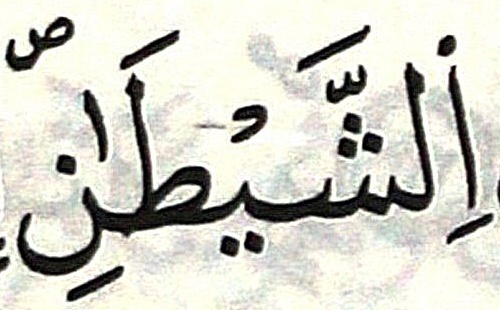 اِ۬لشَّيْطَٰنِۖ